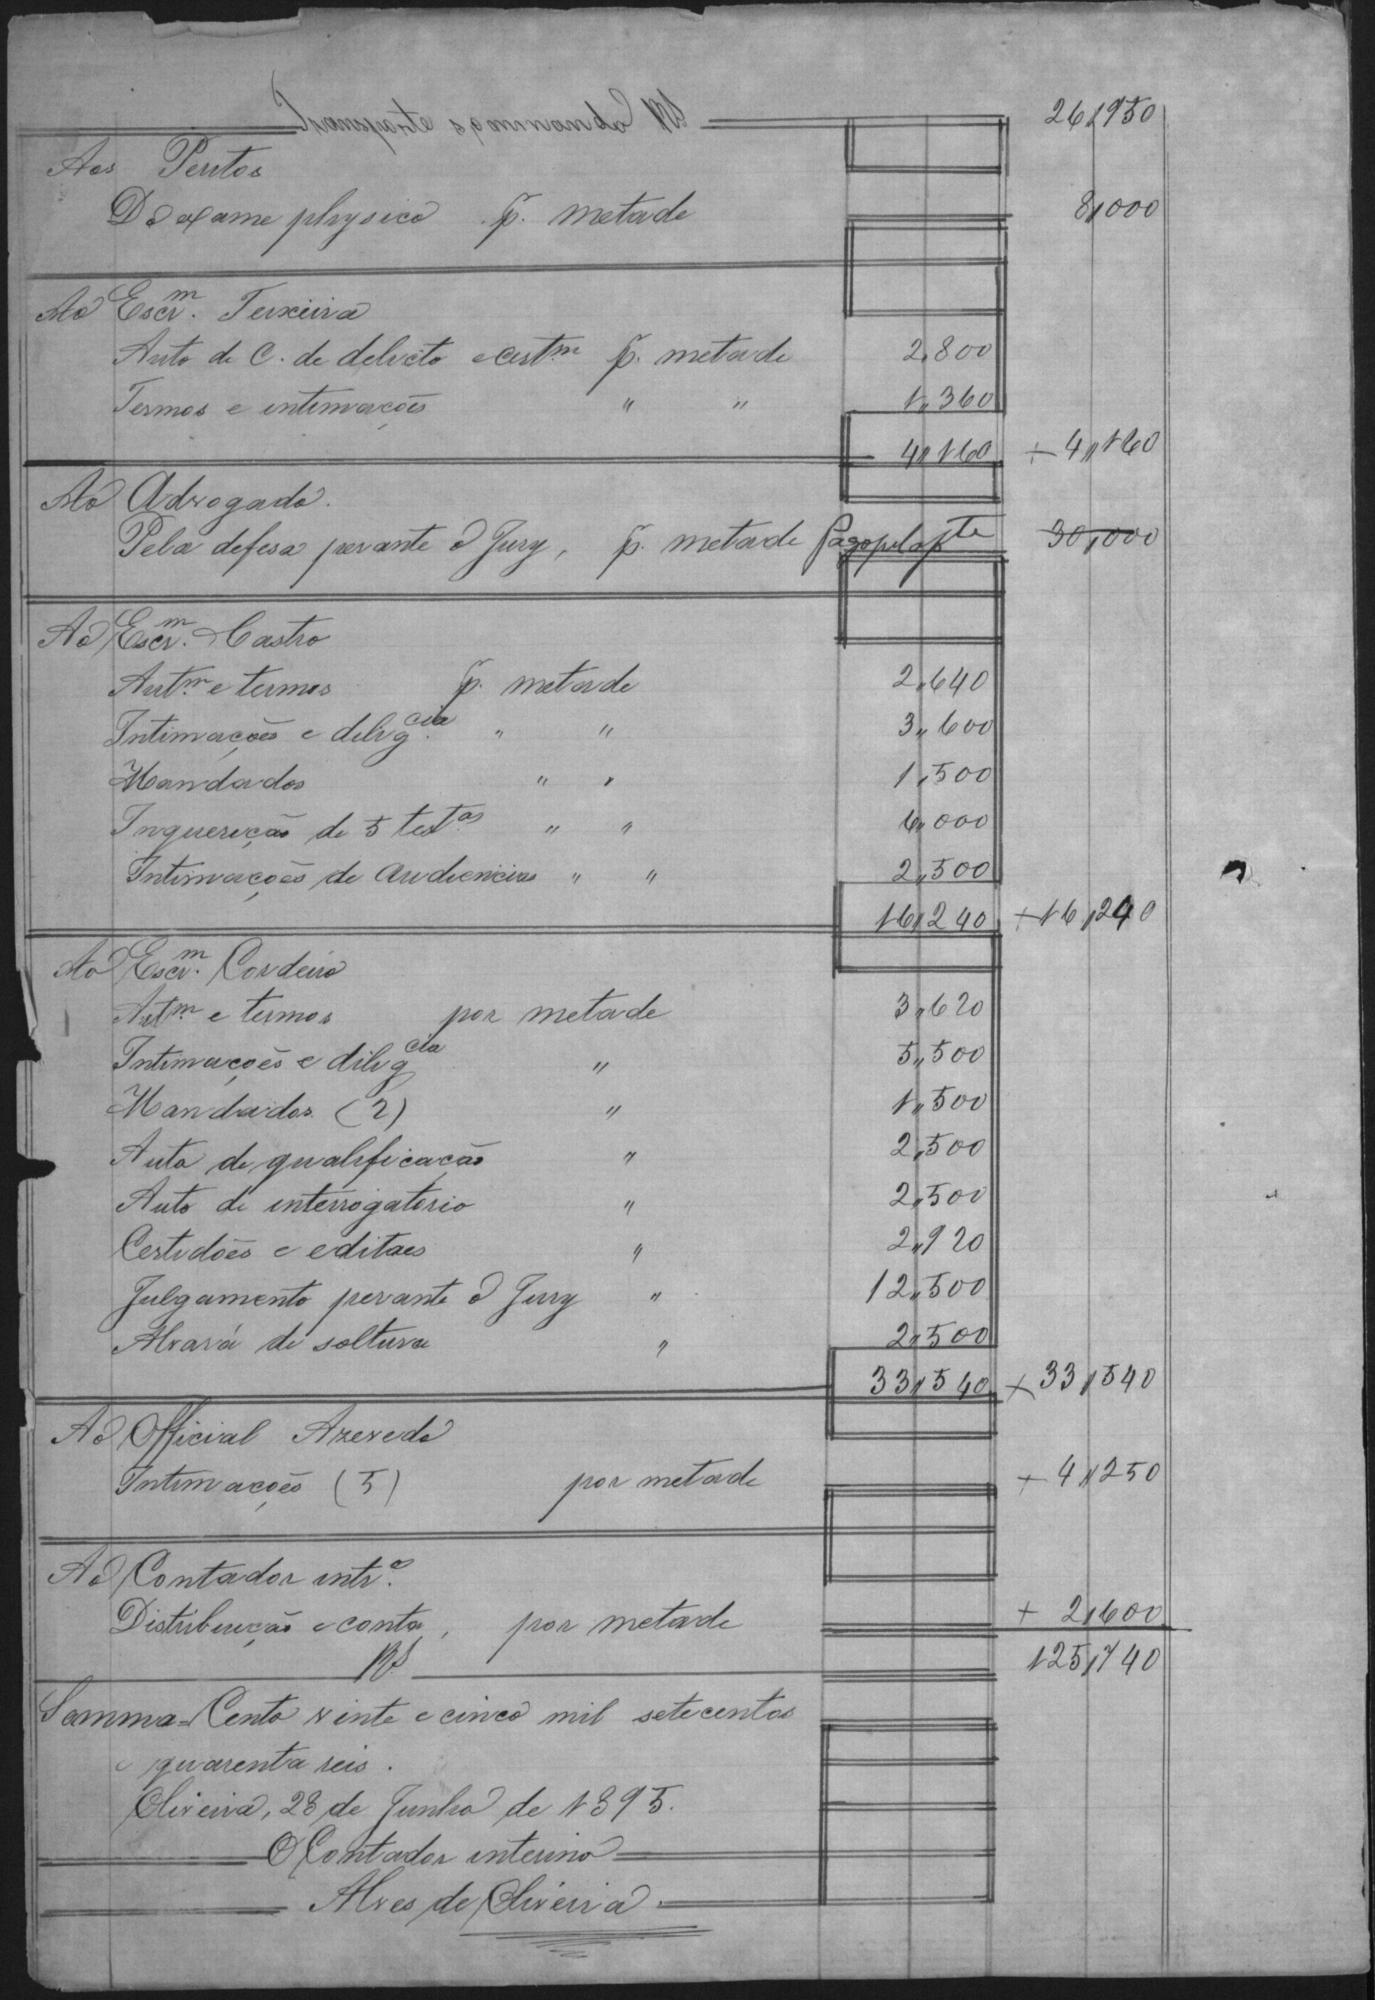 Transporte e sommando Rs 26,950
Aos Peritos
Do exame physico p. metade 8,000
Ao Escr.m Teixeira
Auto de C. de delicto e cert.m p. metade 2,800
Termos e intimações " " 1,360
4,160 + 4,160
Ao Advogado.
Pela defesa perante o Jury, p. metade Pago pela pte 30,000
Ao Escr.m Castro
Aut.m e termos p. metade 2,640
Intimações e dilig.cia " " 3,600
Mandados " " 1,500
Inquereção de 5 test.as " " 6,000
Intimações de audiencias " " 2,500
16,240 + 16,240
Ao Escr.m Cordeiro
Aut.m e termos por metade 3,620
Intimações e dilig.cia " 5,500
Mandados (2) " 1,500
Auto de qualificação " 2,500
Auto de interrogatorio " 2,500
Certidões e editaes " 2,920
Julgamento perante o Jury " 12,500
Alvará de soltura " 2,500
33,540 + 33,540
Ao Official Azevedo
Intimações (5) por metade + 4,250
Ao Contador int.o
Distribuição e conta, por metade + 2,600
Rs 125,740
Somma = Cento vinte e cinco mil setecentos
e quarenta reis.
Oliveira, 28 de Junho de 1895.
O Contador interino
Alves de Oliveira